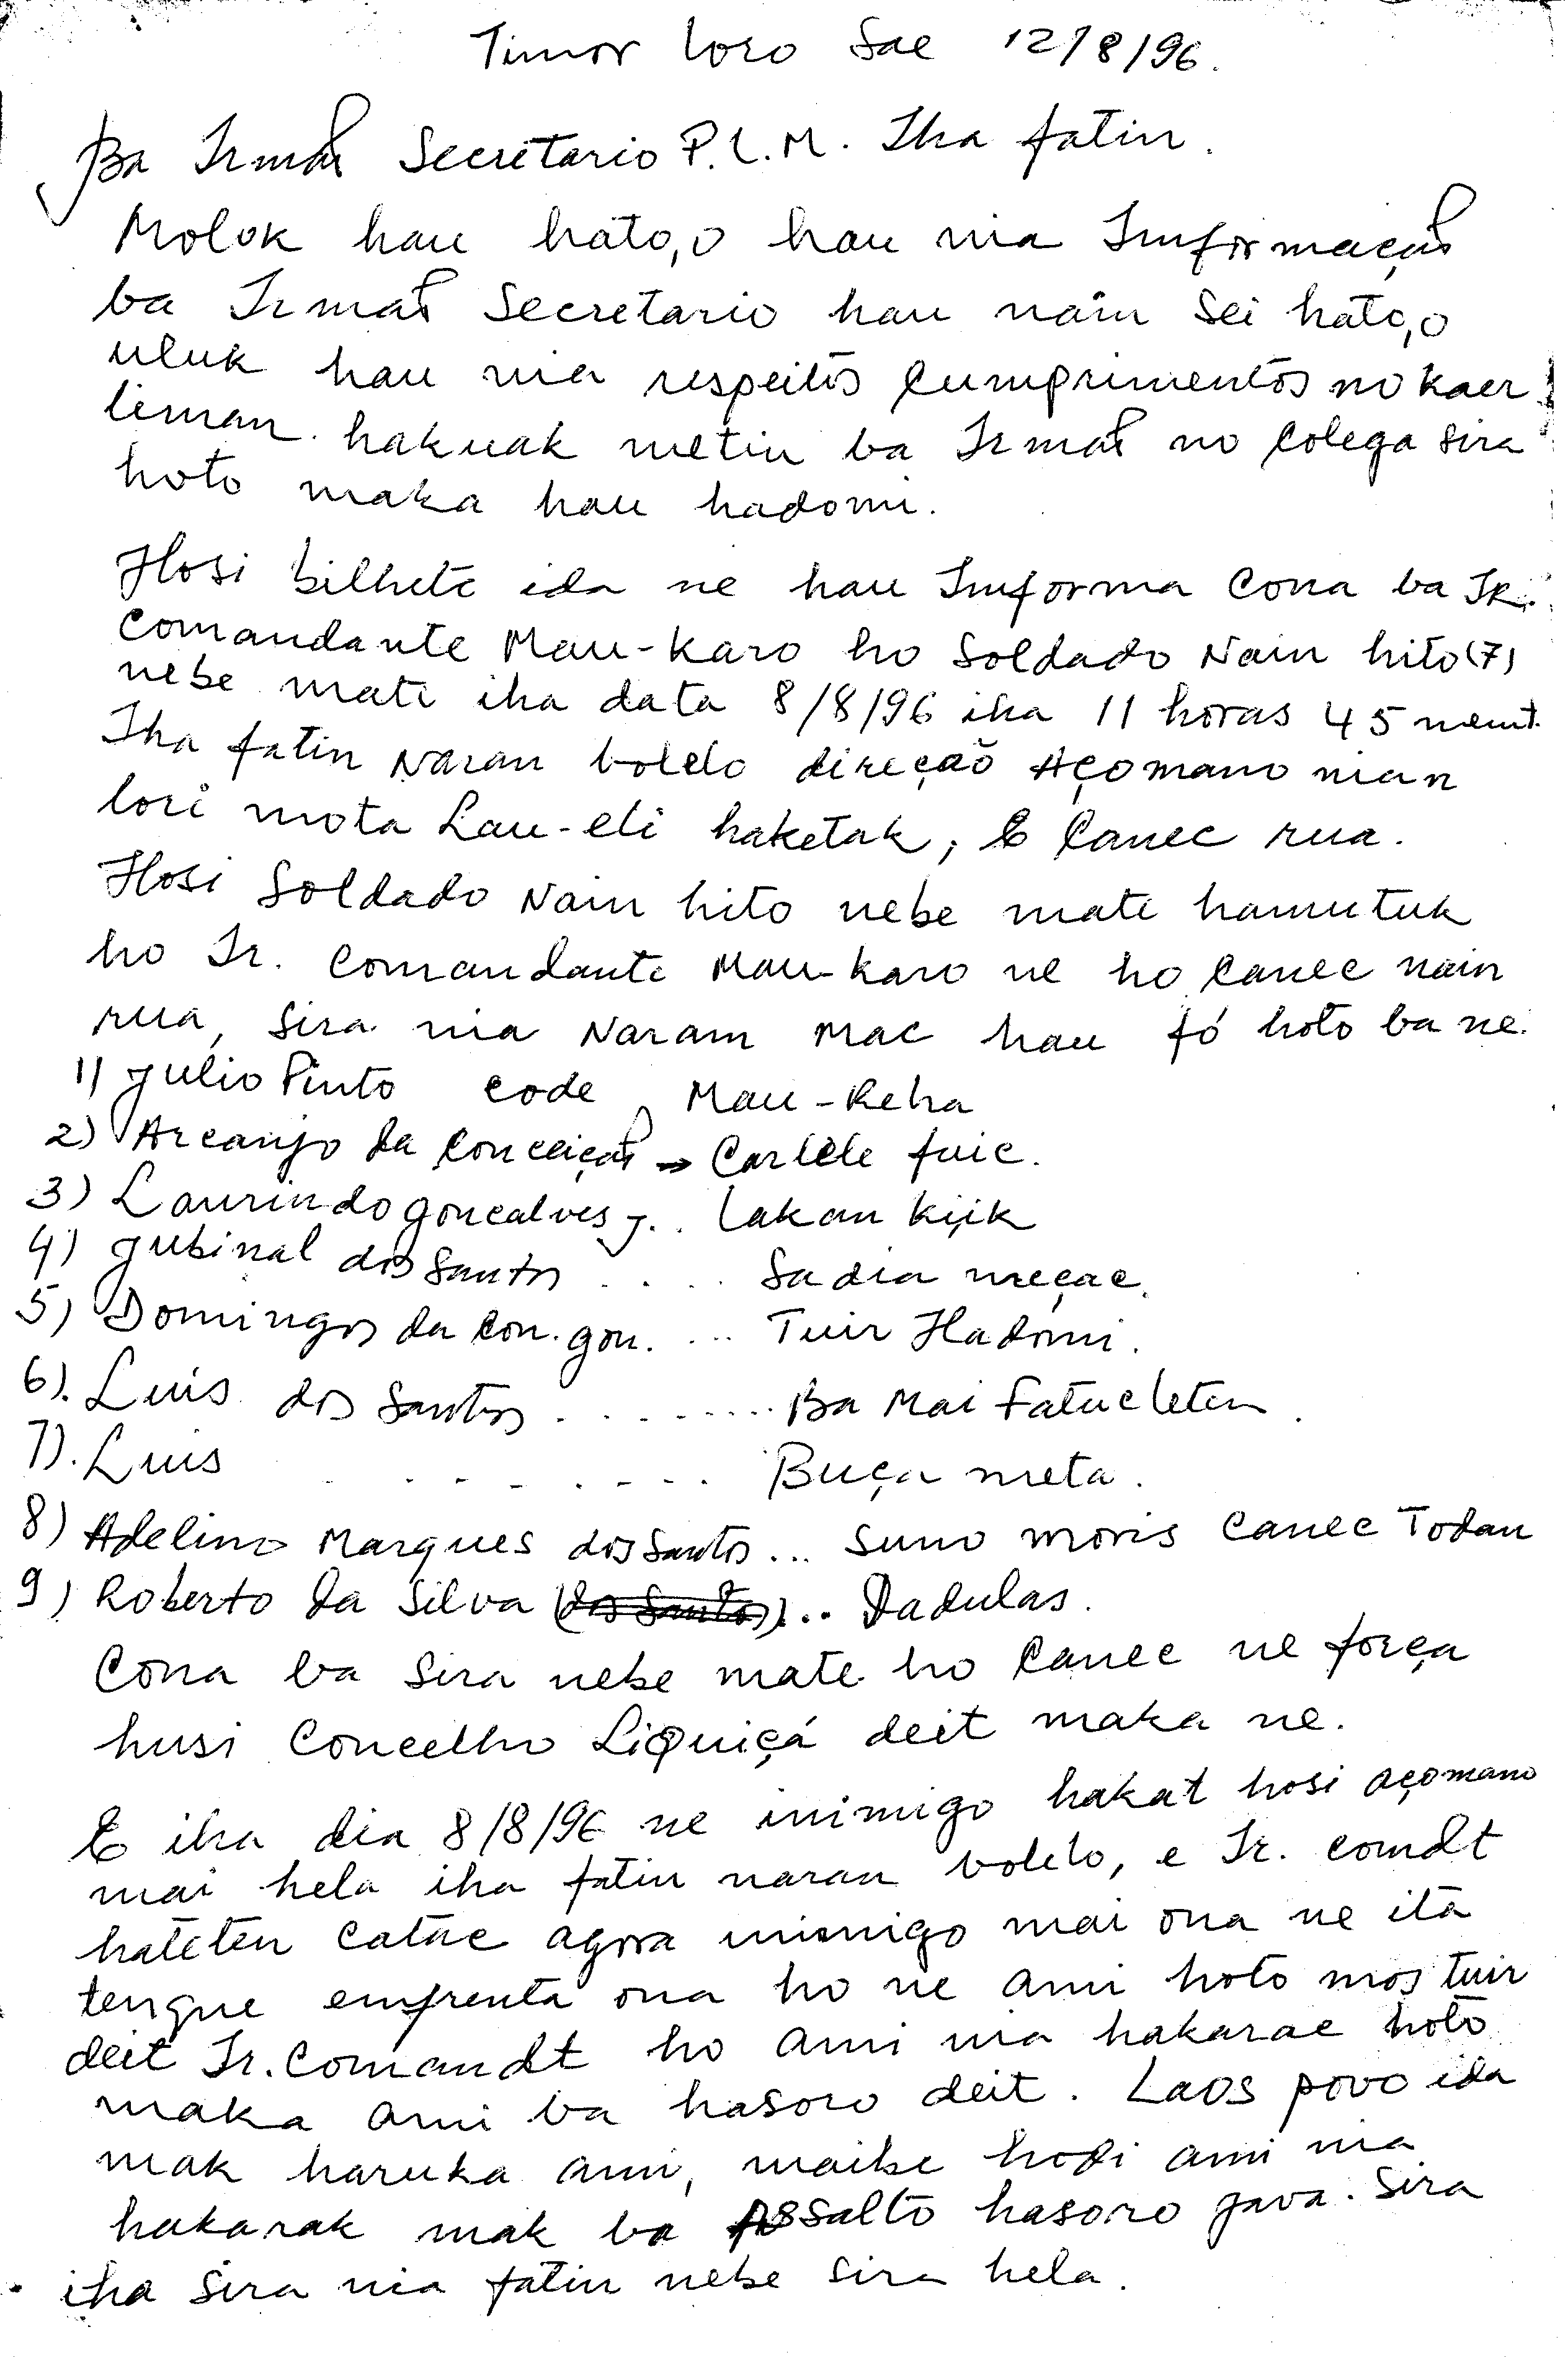 Timor Loro Sae 12/8/96.
Ba Irmão Secretario P.L.M. Iha fatin.
Molok hau hato,o hau nia Imformação
ba Irmão Secretario hau nain sei hato,o
uluk hau nia respeitos Cumprimentos no kaer
liman. hakuak metin ba Irmão no Colega sira
hoto maka hau hadomi.
Hosi bilhete ida ne hau Imforma Cona ba Ir.
Comandante Mau-Karo ho Soldado Nain hito (7)
nebe mate iha data 8/8/96 iha 11 horas 45 menut.
Iha fatin Naran bolelo direção Açomano nian
lori mota Lau-eli haketak, E Canec rua.
Hosi Soldado Nain hito nebe mate hamutuk
ho Ir. Comandante Mau-Karo ne ho Canec nain
rua, sira nia Naram Mac hau fó hoto ba ne.
1) Julio Pinto code Mau-Reha
2) Arcanjo da Conceição → Carlele fuic.
3) Laurindo Goncalves J.. Lakan kiik
4) Jubinal dos Santos .... Sadia meçac.
5) Domingos da Con. Gon. ... Tuir Hadomi.
6). Luis dos Santos ........ Ba Mai Fatucleten.
7). Luis ........ Buça meta.
8) Adelino Marques dos Santos... Suno moris Canec Todan
9) Roberto da Silva (dos Santos)... Dadulas.
Cona ba Sira nebe mate ho Canec ne força
husi Concelho Liquiçá deit maka ne.
E iha dia 8/8/96 ne inimigo hakat hosi açomano
mai hela iha fatin naran bolelo, e Ir. comdt
hateten Catac agora inimigo mai ona ne ita
tengue emfrenta ona ho ne ami hoto mos tuir
deit Ir. Comandt ho ami nia hakarac hoto
maka ami ba hasoro deit. Laos povo ida
mak haruka ami, maibe hodi ami nia
hakarak mak ba Assalto hasoro java. Sira
iha sira nia fatin nebe sira hela.